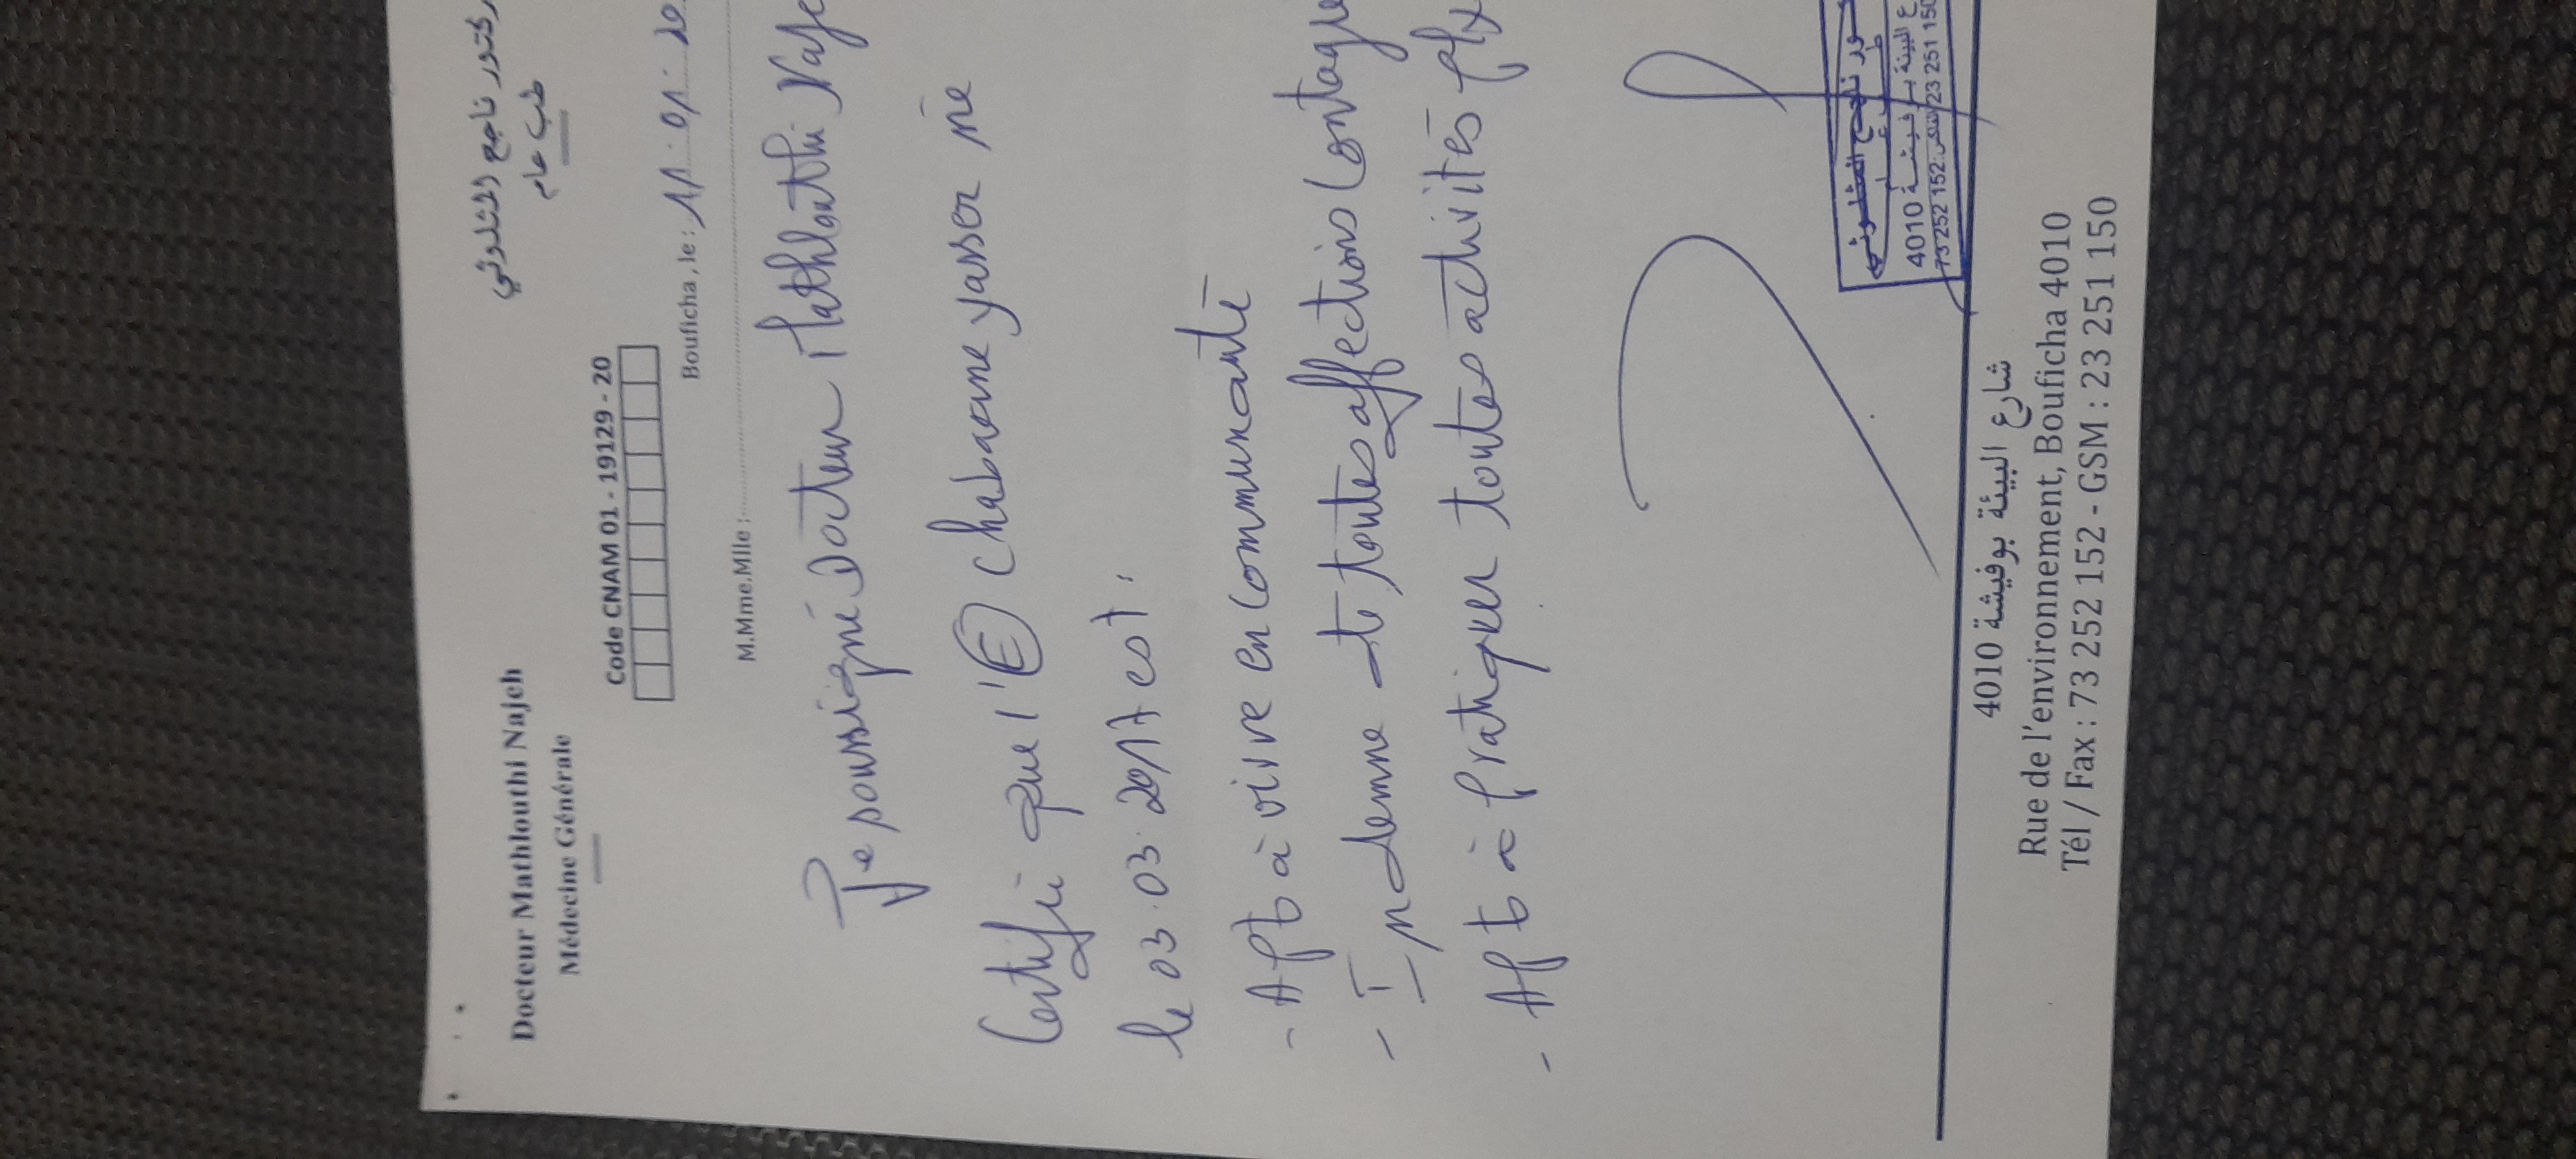 Docteur Mathlouthi Najeh
Médecine Générale
الدكتور ناجح المثلوثي
طب عام
Code CNAM 01 - 19129 - 20
Bouficha, le : 11.01.20
M.Mme.Mlle :
Je soussigné Docteur Mathlouthi Naje
Certifie que l'(E) chabaane yasser né
le 03.03.2017 est :
- Apt à vivre en Communauté
- Indemne de toutes affections Contagie
- Apt à pratiquer toutes activités phy
ناجح المثلوثي
4010
73 252 152 :الفاكس 23 251 150
شارع البيئة بوفيشة 4010
Rue de l'environnement, Bouficha 4010
Tél / Fax : 73 252 152 - GSM : 23 251 150